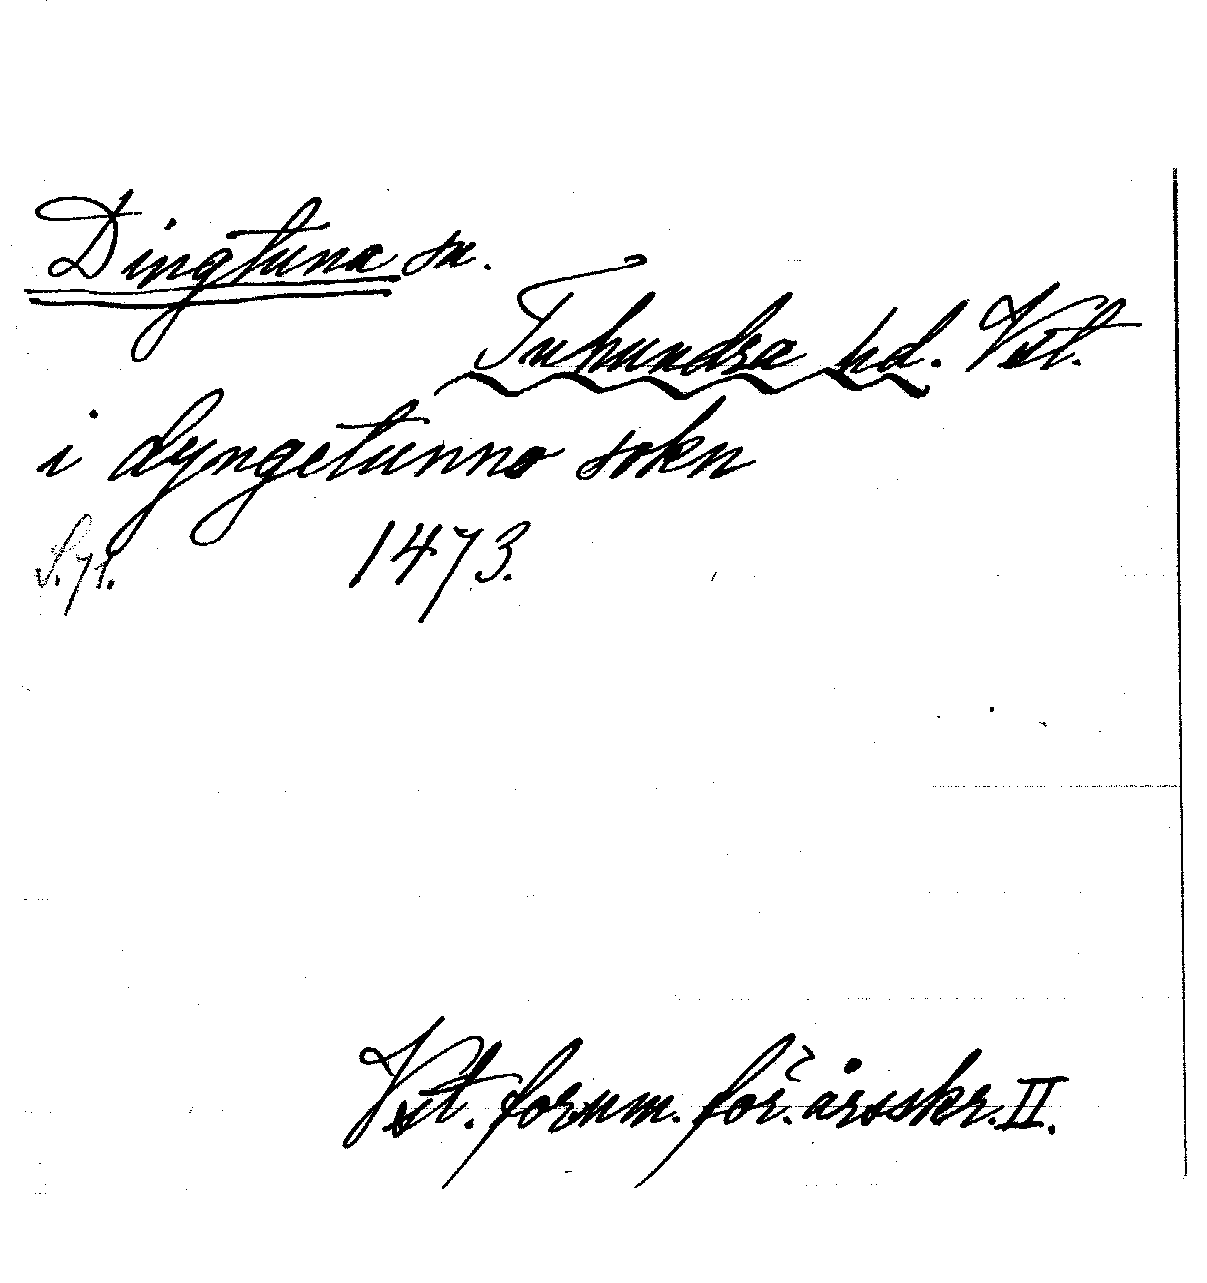 Dingtuna sn.
Tuhundra hd. Vstl.
i dyngetunno sokn
S. 71. 1473.
Vstl. fornm. för. årsskr. II.